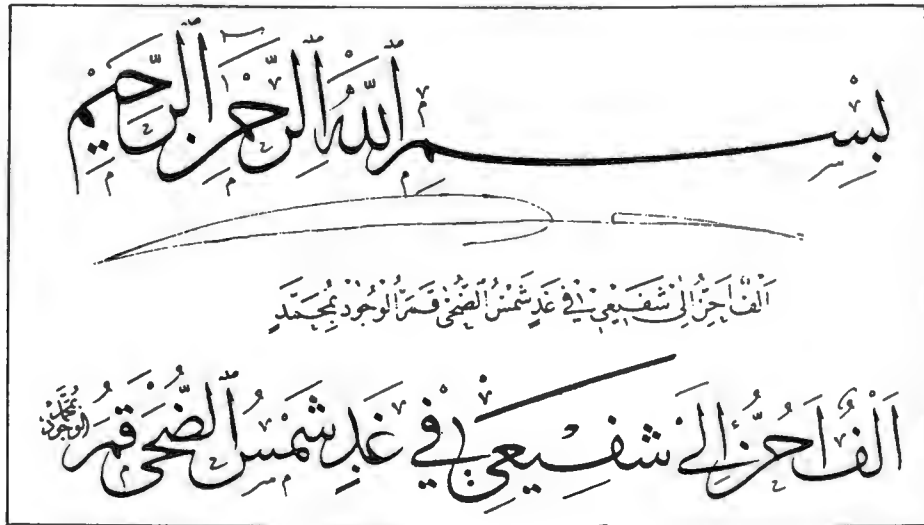 بِسْمِ اللّٰهِ الرَّحْمٰنِ الرَّحِيمِ
الفا الى شفيعي في غد شمس الضحى قمر الوجود بمحمد
الفا الى شفيعي في غد شمس الضحى قمر الوجود بمحمد